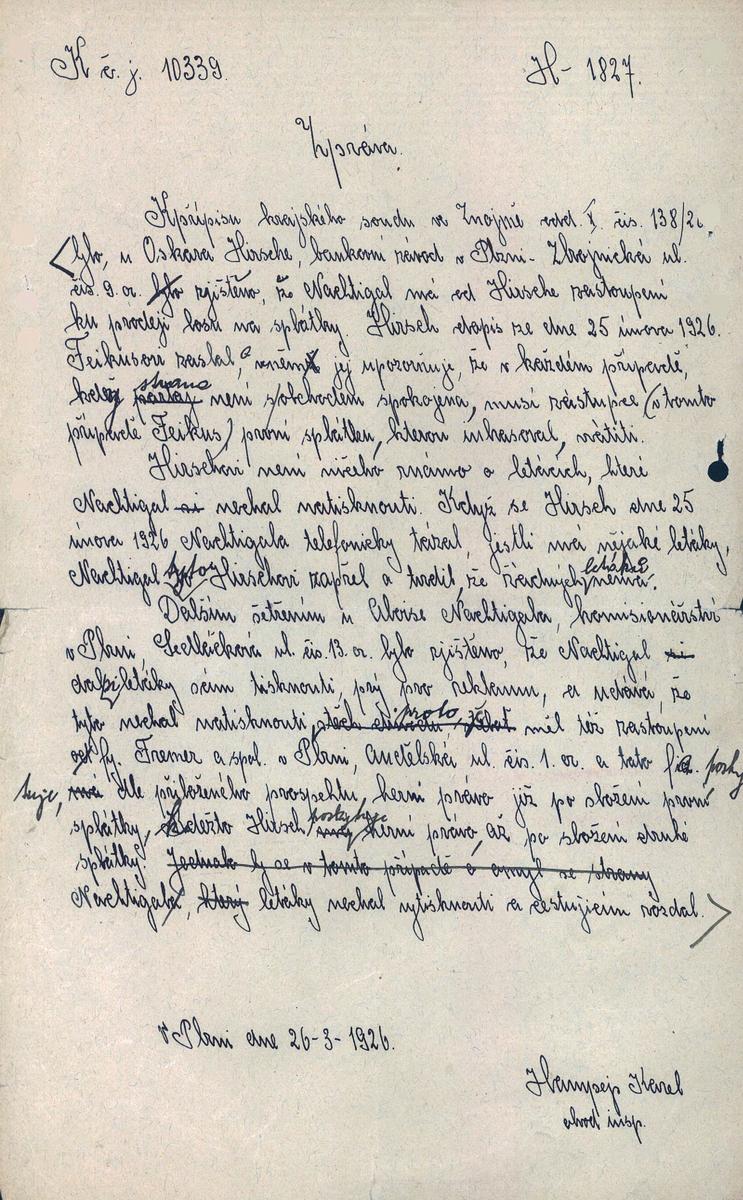 K č. j. 10339. H - 1827.
Zpráva.
K přípisu krajského soudu ve Znojmě odd. čís. 138/26.
bylo, u Oskara Hirsche, bankovní závod v Plzni - Zbrojnická ul.
čís. 9. or. bylo zjištěno, že Nachtigal má od Hirsche zastoupení
ku prodeji losů na splátky. Hirsch dopis ze dne 25 února 1926.
Feikusovi zaslal, a jej upozorňuje, že v každém případě,
když strana není s obchodem spokojena, musí zástupce (v tomto
případě Feikus) první splátku, kterou inkasoval, vrátiti.
Hirschovi není ničeho známo o letácích, které
Nachtigal si nechal natisknouti. Když se Hirsch dne 25
února 1926 Nachtigala telefonicky tázal, jestli má nějaké letáky,
Nachtigal tytoy Hirschovi zapřel a tvrdil, že žádných letáků nemá.
Dalším šetřením u Aloise Nachtigala, komisionářství
v Plzni, Sedláčková ul. čís. 13. or. bylo zjištěno, že Nachtigal si
dal letáky sám tisknouti, prý pro reklamu, a udává, že
tyto nechal natisknouti, proto, měl též zastoupení
od fy. Fremer a spol. v Plzni, Andělská ul. čís. 1. or. a tato fa. posky-
tuje, má dle přiloženého prospektu, herní právo již po složení první
splátky, kdežto Hirsch poskytuje herní právo, až po složení druhé
splátky. Jednalo by se v tomto případě o omyl se strany
Nachtigala, který letáky nechal vytisknouti a cestujícím rozdal.
V Plzni dne 26-3-1926.
Hampejs Karel
obvod insp.